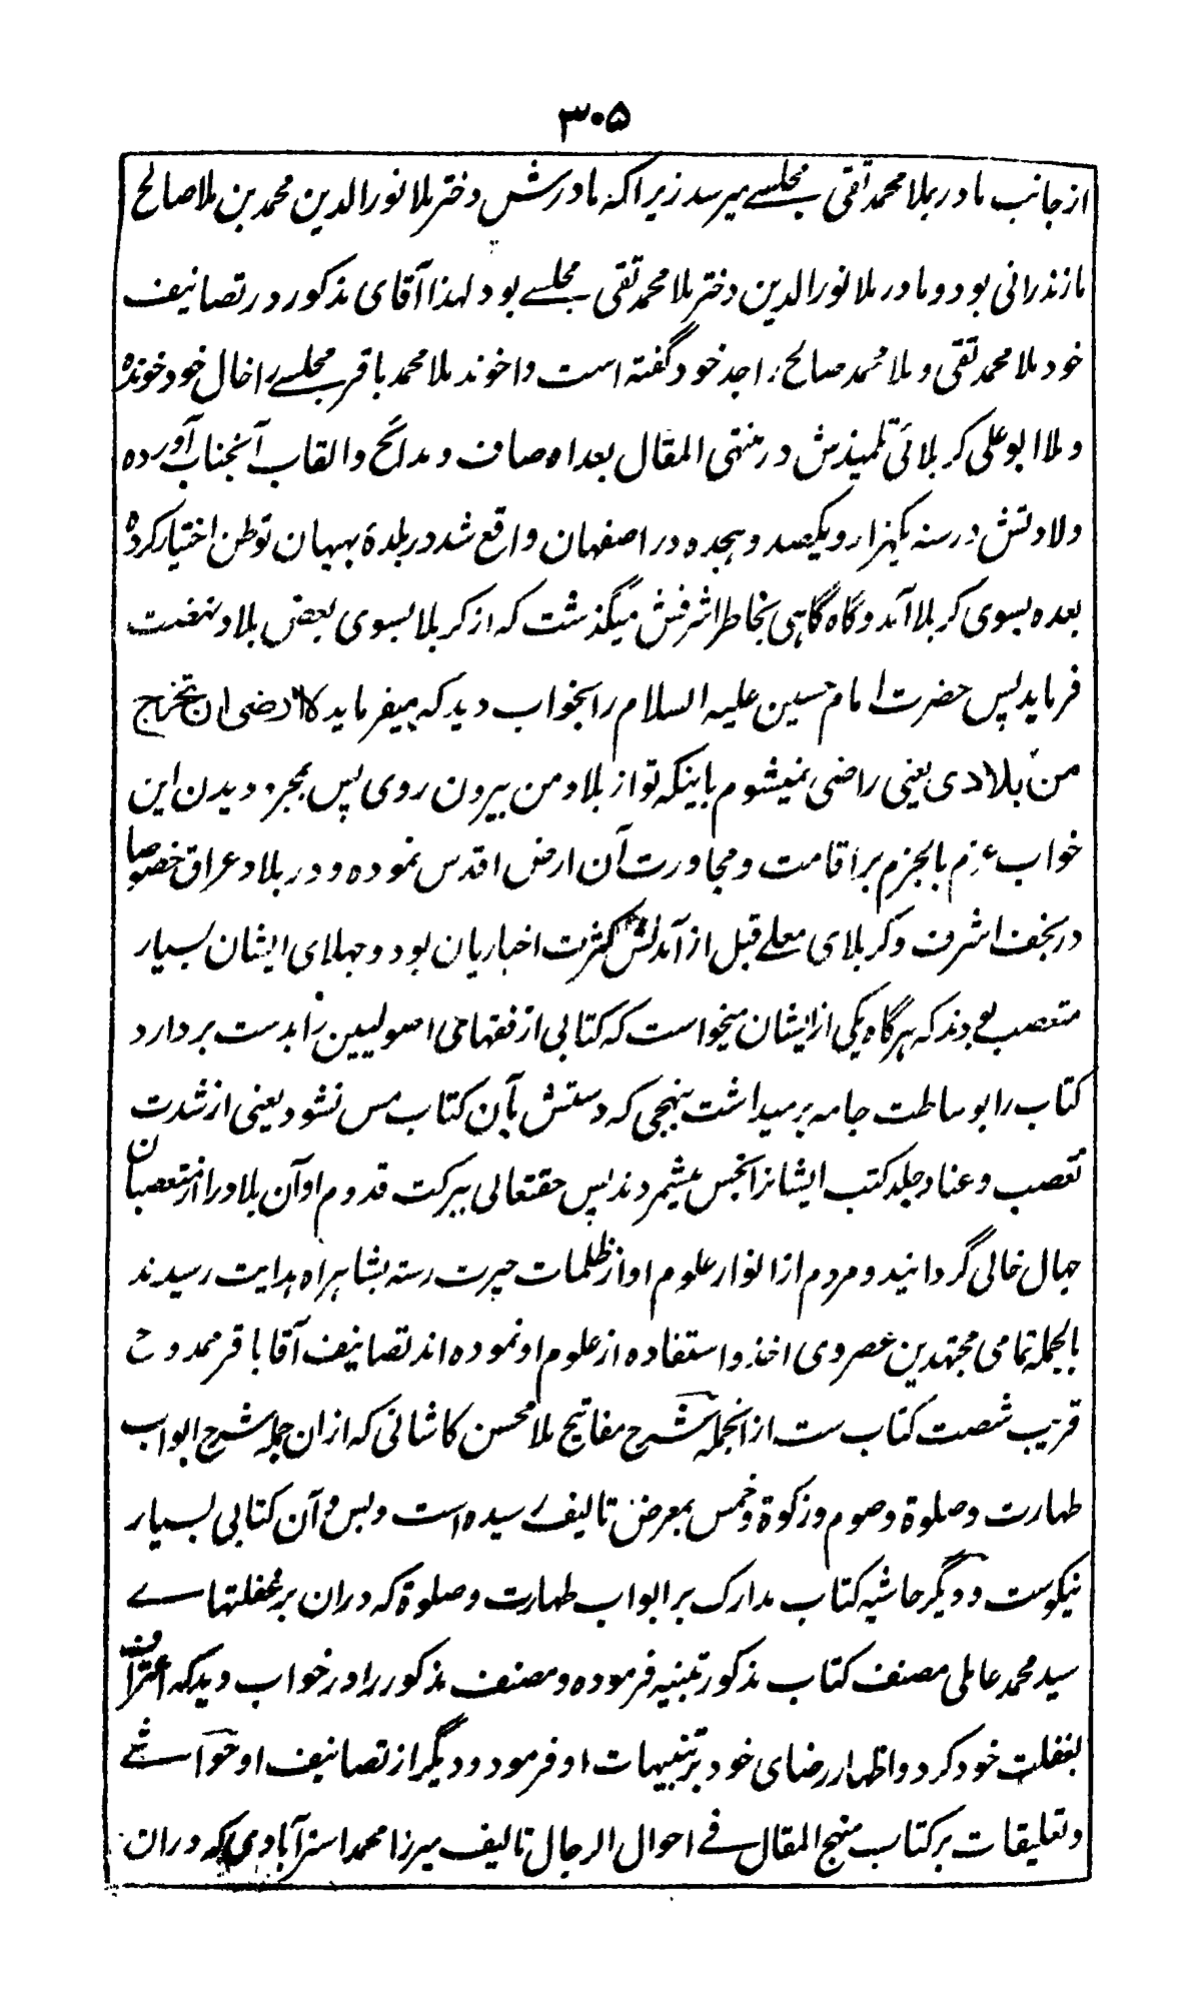 ۳۰۵
از جانب مادر بملا محمد تقی مجلسے میرسد زیرا که مادرش دختر ملا نور الدین محمد بن ملا صالح
مازندرانی بود و مادر ملا نور الدین دختر ملا محمد تقی مجلسے بود لهذا آقای مذکور در تصانیف
خود ملا محمد تقی و ملا محمد صالح را جد خود گفته است و اخوند ملا محمد باقر مجلسے را خال خود خوانده
و ملا ابو علی کربلائی تلمیذش در منتهی المقال بعد اوصاف و مدائح و القاب آنجناب آورده
ولادتش در سنه یکهزار و یکصد و هجده در اصفهان واقع شد در بلدۀ بهبهان توطن اختیار کرده
بعده بسوی کربلا آمد و گاه گاهی بخاطر اشرفش میگذشت که از کربلا بسوی بعض بلاد نهضت
فرماید پس حضرت امام حسین علیه السلام را بخواب دید که میفرماید لا ارضی ان تخرج
من بلادی یعنی راضی نمیشوم باینکه تو از بلاد من بیرون روی پس بمجرد دیدن این
خواب عزم بالجزم بر اقامت و مجاورت آن ارض اقدس نموده و در بلاد عراق خصوصا
در نجف اشرف و کربلای معلے قبل از آمدنش کثرت اخباریان بود و جهلای ایشان بسیار
متعصب بودند که هرگاه یکی از ایشان میخواست که کتابی از فقهای اصولیین را بدست بردارد
کتاب را بوساطت جامه برمیداشت بنهجی که دستش بآن کتاب مس نشود یعنی از شدت
تعصب و عناد جلد کتب ایشانرا نجس میشمردند پس حقتعالی ببرکت قدوم او آن بلاد را از متعصبان
جهال خالی گردانید و مردم از انوار علوم او از ظلمات حیرت رسته بشاهراه هدایت رسیدند
بالجمله تمامی مجتهدین عصر وی اخذ و استفاده از علوم او نموده اند تصانیف آقا باقر ممدوح
قریب شصت کتاب ست از انجمله شرح مفاتیح ملا محسن کاشانی که ازان جمله شرح ابواب
طهارت و صلوة و صوم و زکوة و خمس بمعرض تالیف رسیده است و بس و آن کتابی بسیار
نیکوست و دیگر حاشیه کتاب مدارک بر ابواب طهارت و صلوة که دران بر غفلتهاے
سید محمد عاملی مصنف کتاب مذکور تنبیه فرموده و مصنف مذکور را در خواب دید که اعتراف
بغفلت خود کرد و اظهار رضای خود بر تنبیهات او فرمود و دیگر از تصانیف او حواشے
و تعلیقات بر کتاب منهج المقال فے احوال الرجال تالیف میرزا محمد استرآبادی که دران